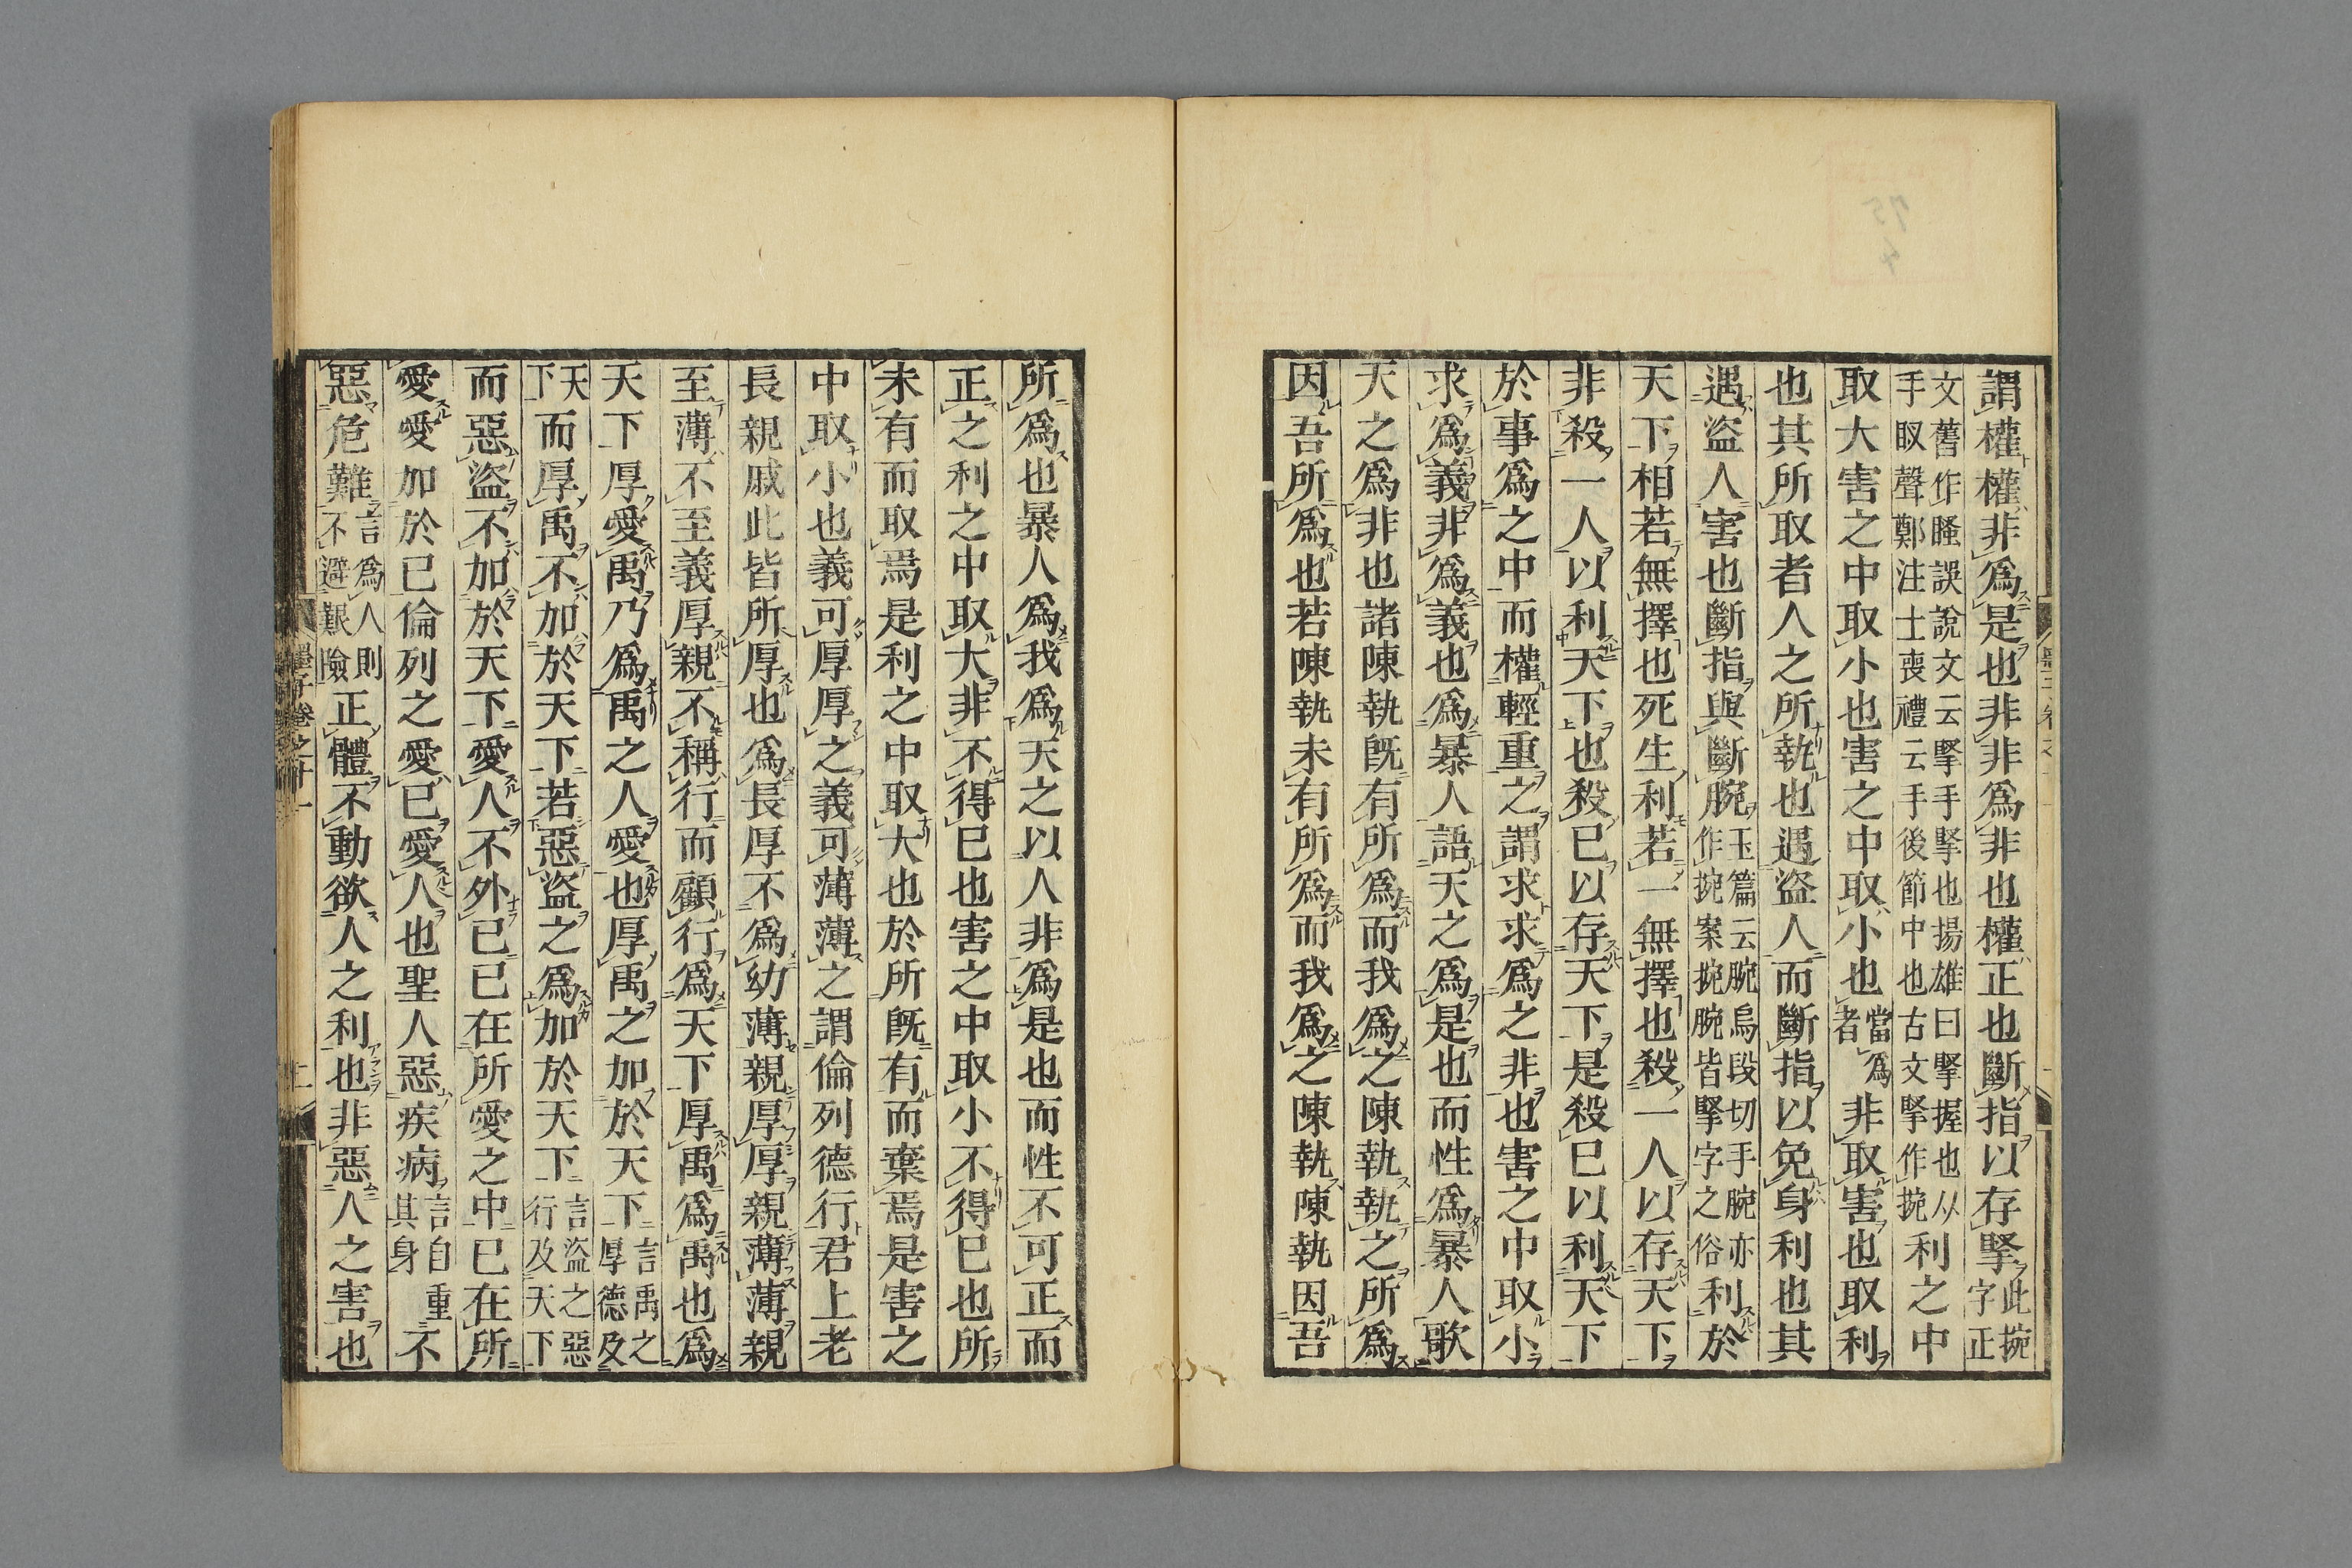 謂權權非爲是也非非爲非也權正也斷指以存掔此捥字正
文舊作腄誤說文云掔手掔也揚雄曰掔握也从手臤聲鄭注士喪禮云手後節中也古文掔作捥利之中
取大害之中取小也害之中取小也當爲者非取害也取利
也其所取者人之所執也遇盜人而斷指以免身利也其
遇盜人害也斷指與斷腕玉篇云腕烏段切手腕亦作捥案捥腕皆掔字之俗利於
天下相若無擇也死生利若一無擇也殺一人以存天下
非殺一人以利天下也殺已以存天下是殺已以利天下
於事爲之中而權輕重之謂求求爲之非也害之中取小
求爲義非爲義也爲暴人語天之爲是也而性爲暴人歌
天之爲非也諸陳執既有所爲而我爲之陳執執之所爲
因吾所爲也若陳執未有所爲而我爲之陳執陳執因吾
所爲也暴人爲我爲天之以人非爲是也而性不可正而
正之利之中取大非不得已也害之中取小不得已也所
未有而取焉是利之中取大也於所既有而棄焉是害之
中取小也義可厚厚之義可薄薄之謂倫列德行君上老
長親戚此皆所厚也爲長厚不爲幼薄親厚厚親薄薄親
至薄不至義厚親不稱行而顧行爲天下厚禹爲禹也爲
天下厚愛禹乃爲禹之人愛也厚禹之加於天下言禹之厚德及
天下而厚禹不加於天下若惡盜之爲加於天下言盜之惡行及天下
而惡盜不加於天下愛人不外已已在所愛之中已在所
愛愛加於已倫列之愛已愛人也聖人惡疾病言自重其身不
惡危難言爲人則不避艱險正體不動欲人之利也非惡人之害也
墨子卷之十一
二